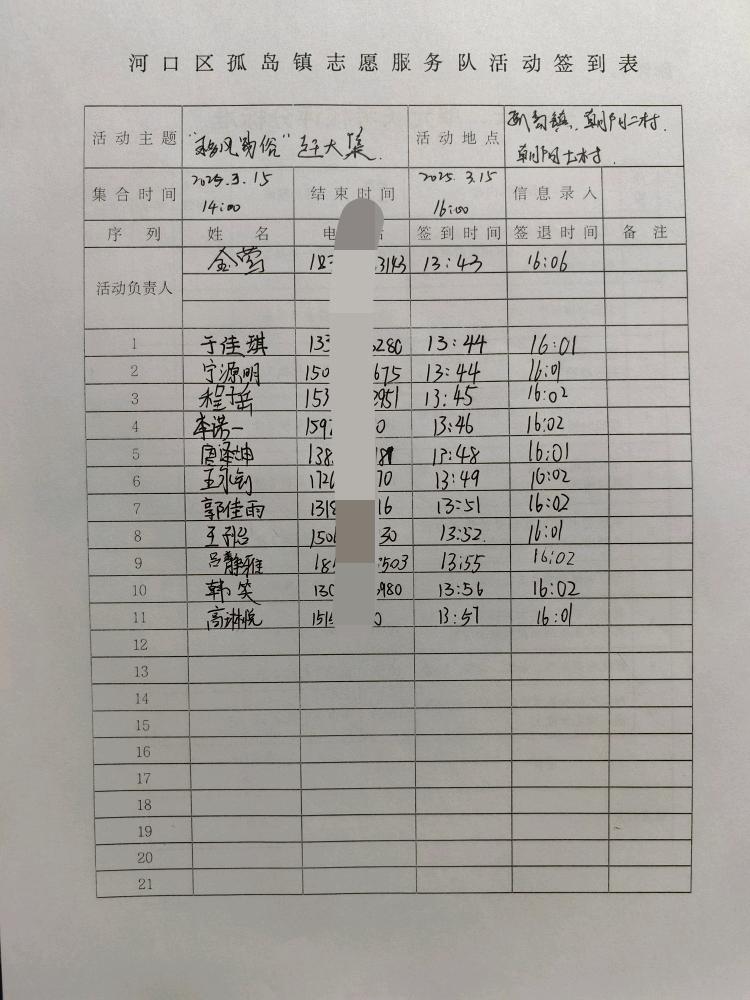 河口区孤岛镇志愿服务队活动签到表
活动主题 "移风易俗"赶大集. 活动地点 孤岛镇.朝阳二村. 朝阳七村.
集合时间 2025.3.15 14:00 结束时间 2025.3.15 16:00 信息录入
序列 姓名 电话 签到时间 签退时间 备注
活动负责人 金莺 3143 13:43 16:06
1 于佳琪 133 280 13:44 16:01
2 宁源明 150 675 13:44 16:01
3 程子岳 153 951 13:45 16:02
4 李诺一 159 0 13:46 16:02
5 138 13:48 16:01
6 172 70 13:49 16:02
7 郭佳雨 1318 16 13:51 16:02
8 150 30 13:52. 16:01
9 吕静雅 18 503 13:55 16:02
10 韩笑 130 980 13:56 16:02
11 高琳悦 151 0 13:57 16:01
12
13
14
15
16
17
18
19
20
21